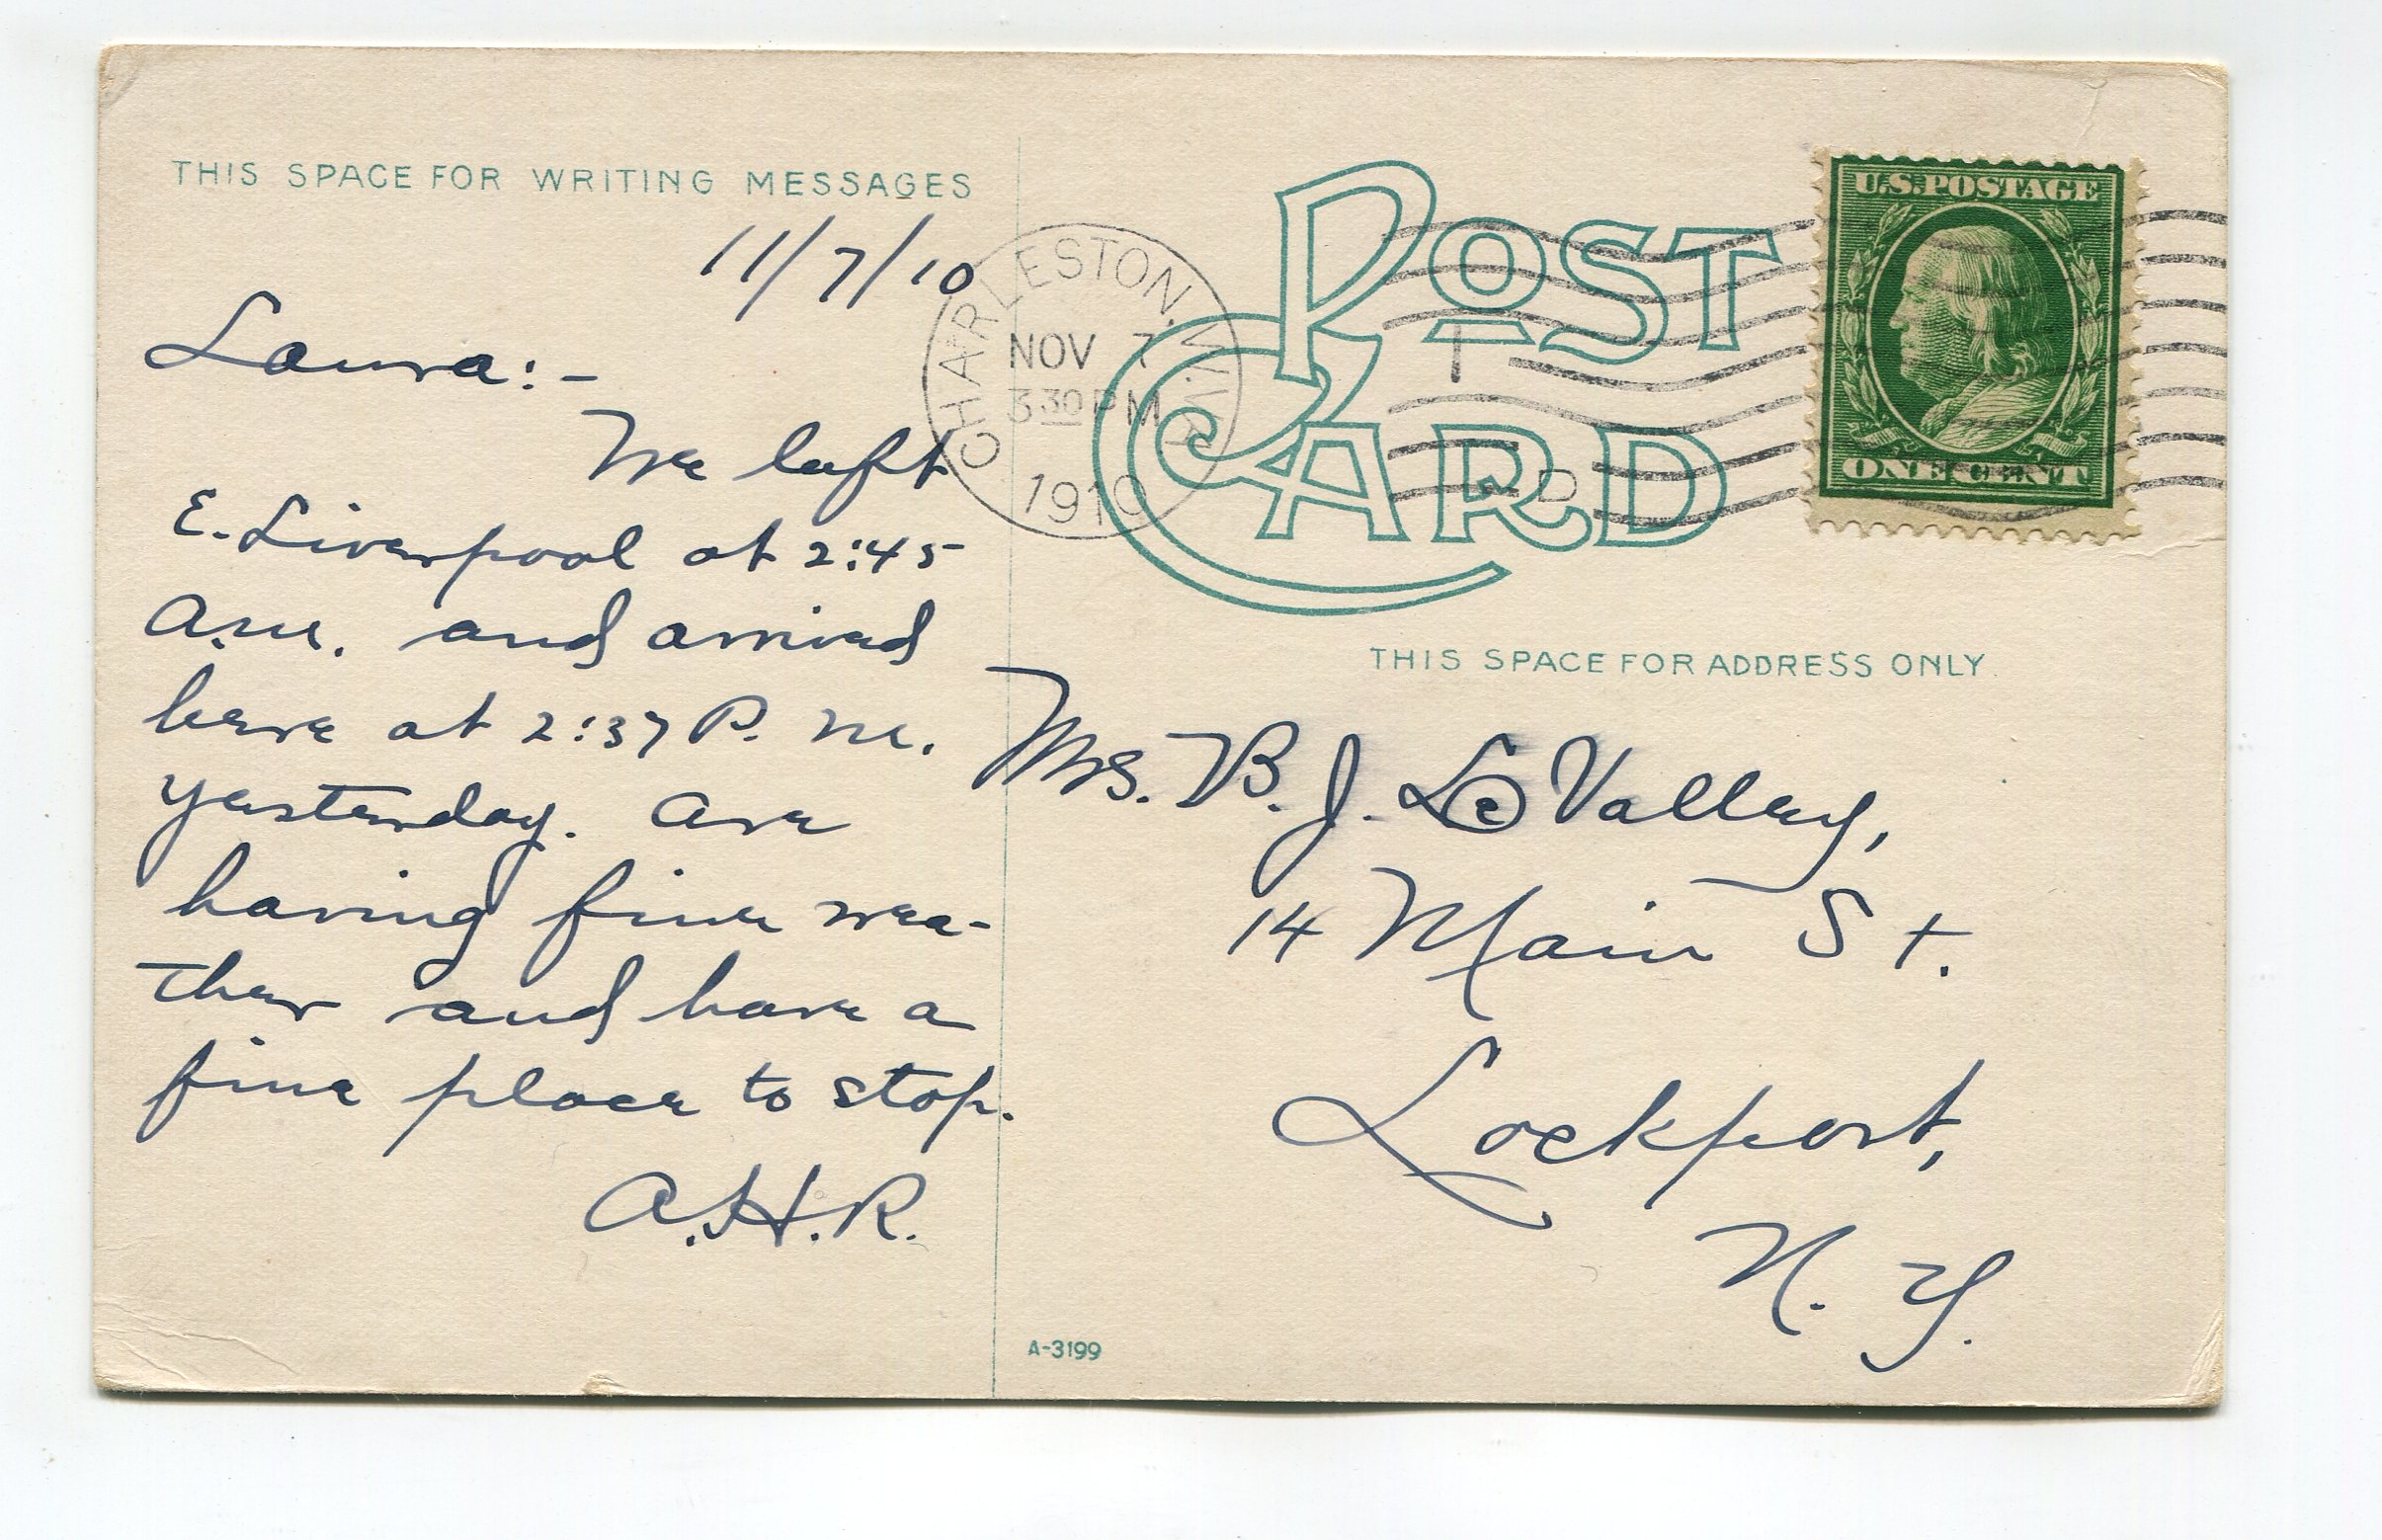 THIS SPACE FOR WRITING MESSAGES
11/7/10
Laura:-
We left
E. Liverpool at 2:45
a.m. and arrived
here at 2:37 P. M.
yesterday. Are
having fine wea-
ther and have a
fine place to stop.
A.H.R.
POST
CARD
CHARLESTON, W. VA.
NOV 7
3 30 PM
1910
U.S. POSTAGE
ONE CENT
THIS SPACE FOR ADDRESS ONLY.
Mrs. B. J. Le Valley,
14 Main St.
Lockport,
N. Y.
A-3199